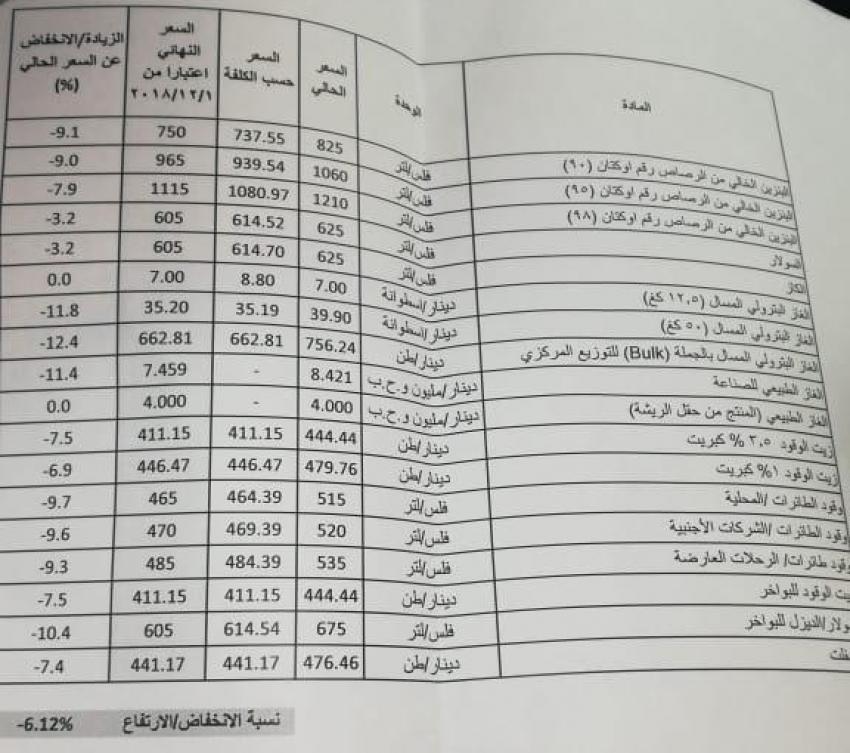 المادة الوحدة السعر الحالي السعر حسب الكلفة السعر النهائي اعتبارا من ٢٠١٨/١٢/١ الزيادة/الانخفاض عن السعر الحالي (%)
البنزين الخالي من الرصاص رقم اوكتان (٩٠) فلس/لتر 825 737.55 750 -9.1
البنزين الخالي من الرصاص رقم اوكتان (٩٥) فلس/لتر 1060 939.54 965 -9.0
البنزين الخالي من الرصاص رقم اوكتان (٩٨) فلس/لتر 1210 1080.97 1115 -7.9
السولار فلس/لتر 625 614.52 605 -3.2
الكاز فلس/لتر 625 614.70 605 -3.2
الغاز البترولي المسال (١٢,٥ كغ) دينار/اسطوانة 7.00 8.80 7.00 0.0
الغاز البترولي المسال (٥٠ كغ) دينار/اسطوانة 39.90 35.19 35.20 -11.8
الغاز البترولي المسال بالجملة (Bulk) للتوزيع المركزي دينار/طن 756.24 662.81 662.81 -12.4
الغاز الطبيعي للصناعة دينار/مليون و.ح.ب 8.421 - 7.459 -11.4
الغاز الطبيعي (المنتج من حقل الريشة) دينار/مليون و.ح.ب 4.000 - 4.000 0.0
زيت الوقود ٣,٥ % كبريت دينار/طن 444.44 411.15 411.15 -7.5
زيت الوقود ١% كبريت دينار/طن 479.76 446.47 446.47 -6.9
وقود الطائرات /المحلية فلس/لتر 515 464.39 465 -9.7
وقود الطائرات /الشركات الأجنبية فلس/لتر 520 469.39 470 -9.6
وقود طائرات/ الرحلات العارضة فلس/لتر 535 484.39 485 -9.3
يت الوقود للبواخر دينار/طن 444.44 411.15 411.15 -7.5
ولار/الديزل للبواخر فلس/لتر 675 614.54 605 -10.4
دينار/طن 476.46 441.17 441.17 -7.4
نسبة الانخفاض/الارتفاع -6.12%